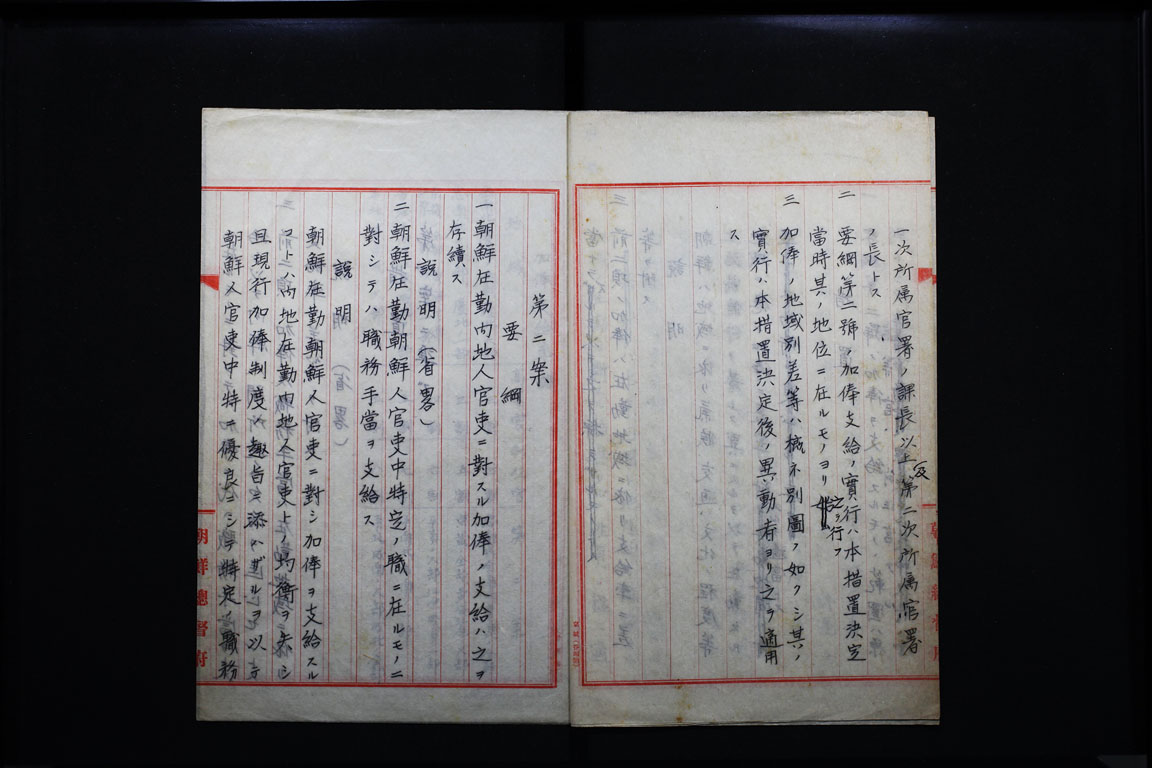 一次所属官署ノ課長以上及第二次所属官署
ノ長トス
二　要綱第二號ノ加俸支給ノ實行ハ本措置決定
當時其ノ地位ニ在ルモノヨリ之ヲ行フ
三　加俸ノ地域別差等ハ概ネ別圖ノ如クシ其ノ
實行ハ本措置決定後ノ異動者ヨリ之ヲ適用
ス
第二案
要綱
一　朝鮮在勤内地人官吏ニ對スル加俸ノ支給ハ之ヲ
存續ス
説明（省略）
二　朝鮮在勤朝鮮人官吏中特定ノ職ニ在ルモノニ
對シテハ職務手當ヲ支給ス
説明
朝鮮在勤朝鮮人官吏ニ對シ加俸ヲ支給スル
コトハ内地在勤内地人官吏トノ均衡ヲ失シ
且現行加俸制度ノ趣旨ニ添ハザルヲ以テ
朝鮮人官吏中特ニ優良ニシテ特定ノ職務
朝鮮總督府